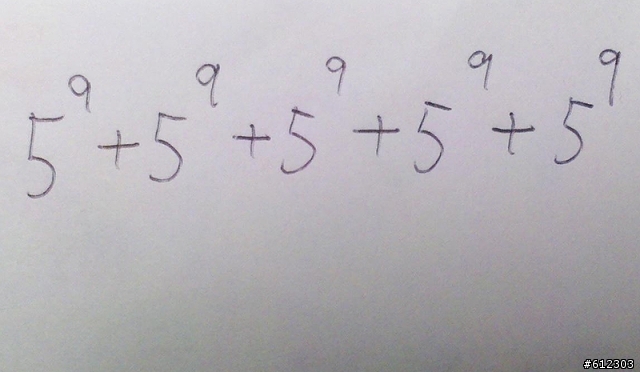 5⁹+5⁹+5⁹+5⁹+5⁹
#612303